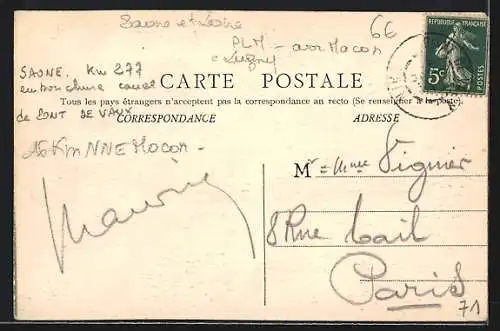 Saone et Loire
6€
PLM - arr Macon
Lugny
SAONE. Km 277
embouchure canal
de PONT DE VAUX
16 Km NNE Macon -
CARTE POSTALE
Tous les pays étrangers n'acceptent pas la correspondance au recto (Se renseigner à la poste).
CORRESPONDANCE
ADRESSE
REPUBLIQUE FRANÇAISE
5c
POSTES
Mr = Mme Vignier
8 Rue Cail
Paris
71